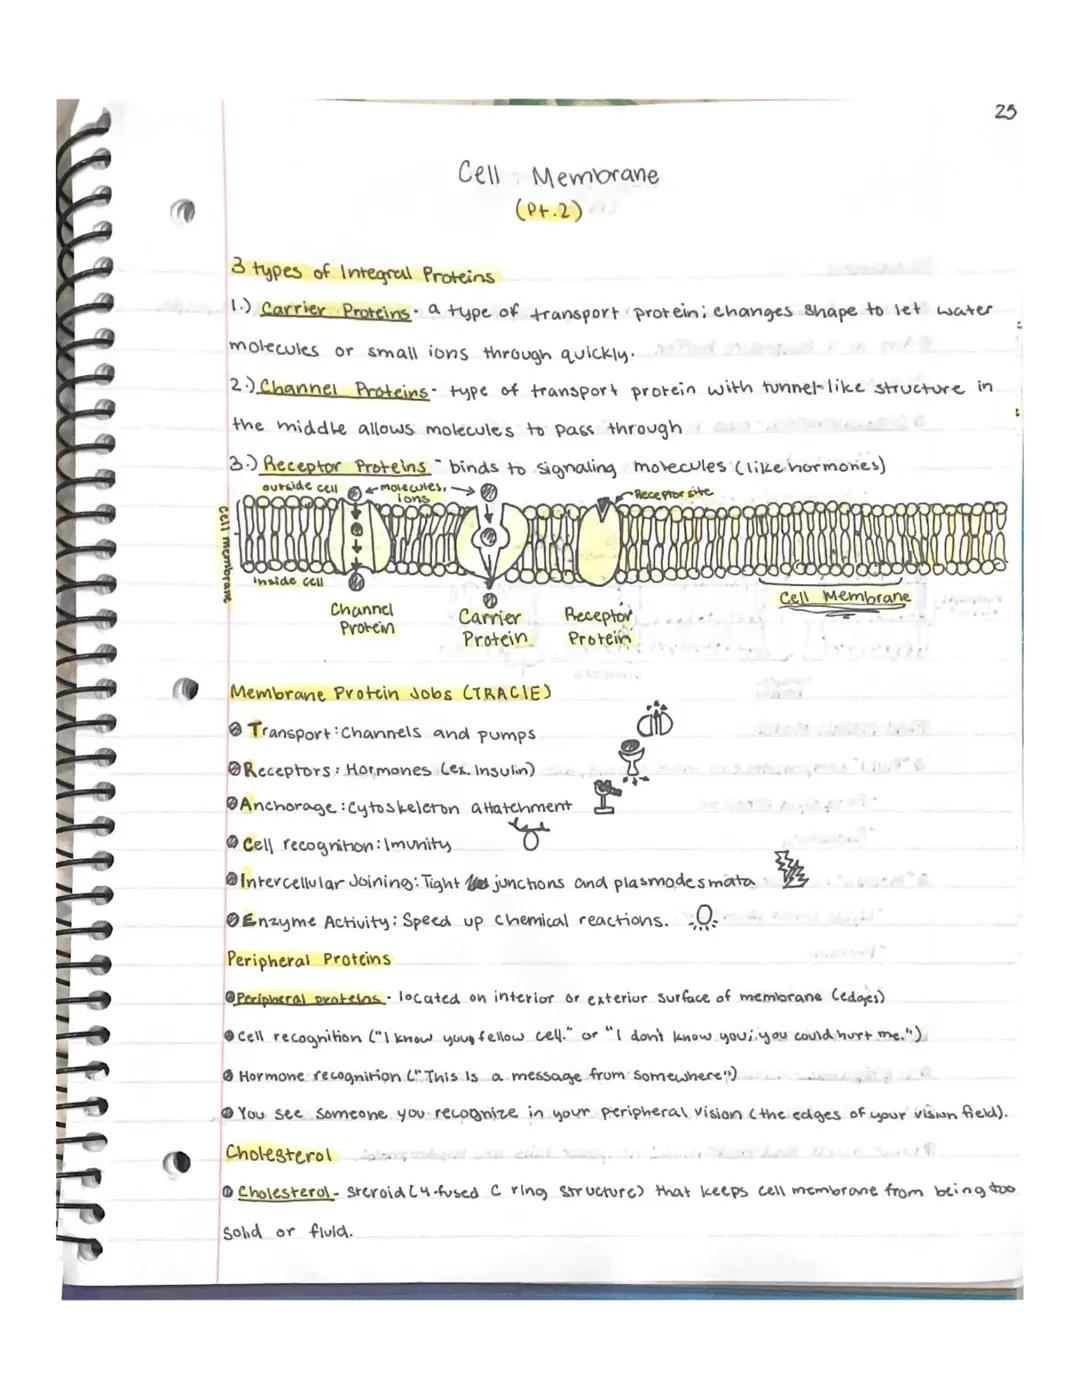 25
Cell Membrane
(Pt.2)
3 types of Integral Proteins
1.) Carrier Proteins- a type of transport protein; changes shape to let water
molecules or small ions through quickly.
2.) Channel Proteins- type of transport protein with tunnel-like structure in
the middle allows molecules to pass through
3.) Receptor Proteins - binds to signaling molecules (like hormones)
outside cell
molecules,
ions
Receptor site
cell membrane
inside cell
Cell Membrane
Channel
Protein
Carrier
Protein
Receptor
Protein
Membrane Protein Jobs (TRACIE)
Transport: Channels and pumps
Receptors: Hormones (ex. Insulin)
Anchorage: Cytoskeleton attatchment
Cell recognition: Imunity
Intercellular Joining: Tight junctions and plasmodesmata
Enzyme Activity: Speed up chemical reactions.
Peripheral Proteins
Peripheral proteins- located on interior or exterior surface of membrane (edges)
Cell recognition ("I know you, fellow cell." or "I don't know you; you could hurt me.")
Hormone recognition ("This is a message from somewhere")
You see someone you recognize in your peripheral vision (the edges of your vision field).
Cholesterol
Cholesterol- steroid (4-fused C ring structure) that keeps cell membrane from being too
solid or fluid.